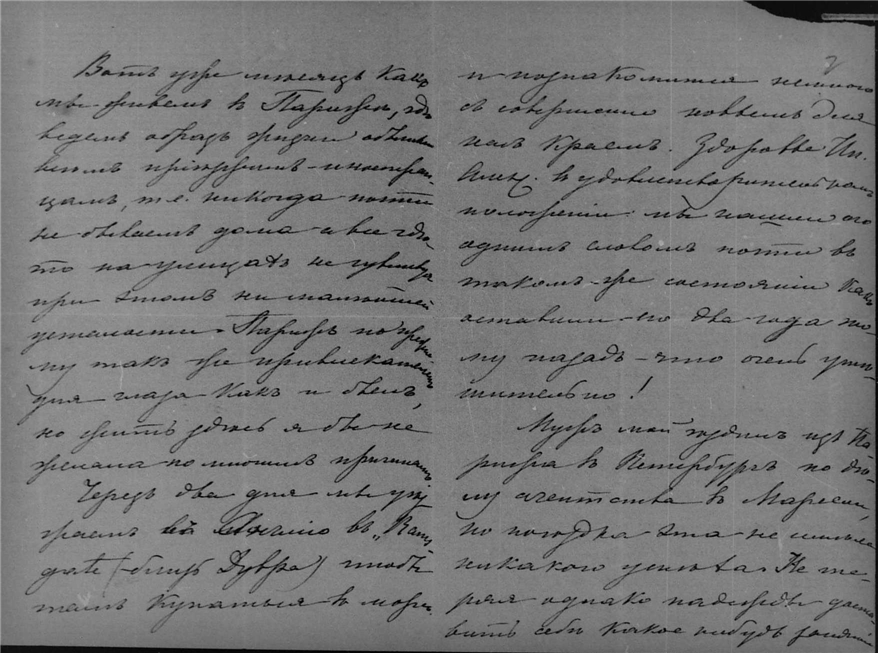 Вотъ уже мѣсяцъ какъ
мы живемъ в Парижѣ, гдѣ
ведемъ образъ жизни
пріѣзжимъ – иностран-
цамъ, т. е. никогда почти
не бываемъ дома а все гдѣ
то на улицахъ не чувствуя
при этомъ ни малѣйшей
усталости. Парижъ по преж-
му такъ же привлекателенъ
для глаза какъ и былъ,
но жить здѣсь я бы не
желала по многимъ причинамъ.
Чередъ два дня мы уѣз-
жаемъ въ Англію въ „Ram-
gate (близъ Дувра) чтобъ
тамъ купаться в морѣ
2
и познакомится немного
съ совершенно новымъ для
насъ краемъ. Здоровье Ив.
Алек. в удовлетворительномъ
положеніи мы нашли его
однимъ словомъ почти въ
такомъ-же состояніи какъ
оставили его два года то-
му назадъ – что очень утѣ-
шительно!
Мужъ мой ѣздилъ изъ Па-
рижа в Петербургъ по дѣ-
лу агентства в Марсели,
но поѣздка эта не имѣла
никакого успѣха. Не те-
ряя однако надежды доста-
вить себѣ какое нибудь